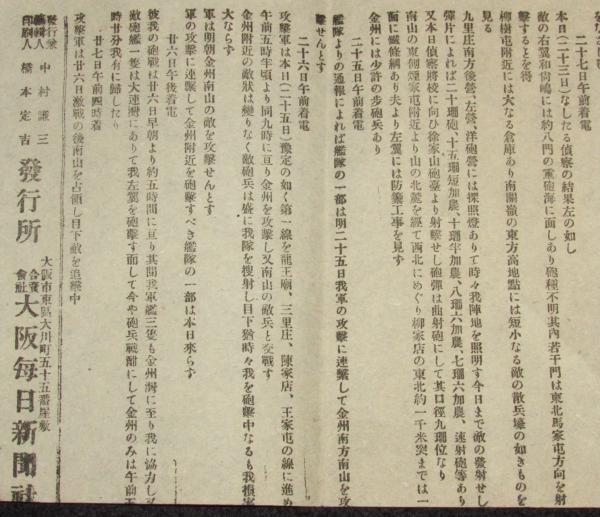 二十七日午前着電
本日(二十三日)なしたる偵察の結果左の如し
敵の右翼和尚嶋には約八門の重砲海に面しあり砲種不明其內若干門は東北馬家屯方向を射
擊するとを得
柳樹屯附近には大なる倉庫あり南關嶺の東方高地點には短小なる敵の散兵壕の如きものを
見る
九里庄南方後營、左營、洋砲營には探照燈ありて時々我陣地を照明す今日まで敵の發射せし
彈片によれば二十珊砲、十五珊短加農、十珊半加農、八珊六加農、七珊六加農、速射砲等あり
又本日偵察將校に向ひ徐家山砲臺より射擊せし砲彈は曲射砲にして其口徑九珊位なり
南山の東側煙家屯附近より山の北麓を經て西北にめぐり柳家店の東北約一千米突までは一
面に鐵條網あり夫より左翼には防禦工事を見ず
金州には少許の步砲兵あり
二十五日午前着電
艦隊よりの通報によれば艦隊の一部は明二十五日我軍の攻擊に連繫して金州南方南山を攻
擊せんとす
二十六日午前着電
攻擊軍は本日(二十五日)豫定の如く第一線を龍王廟、三里庄、陳家店、王家屯の線に進め
午前五時半頃より同九時に亘り金州を攻擊し又南山の敵兵と交戰す
金州附近の敵狀は變りなく敵砲兵は盛に我隊を搜射し目下猶時々我を砲擊中なるも我損害
大ならず
軍は明朝金州南山の敵を攻擊せんとす
軍の攻擊に連繫して金州附近を砲擊すべき艦隊の一部は本日來らず
廿六日午後着電
彼我の砲戰は廿六日早朝より約五時間に亘り其間我軍艦三隻も金州灣に至り我に協力し又
敵砲艦一隻は大連灣にありて我左翼を砲擊す而して今や砲兵戰酣にして金州のみは午前五
時廿分我有に歸したり
廿七日午前四時着
攻擊軍は廿六日激戰の後南山を占領し目下敵を追擊中
發行兼
編輯人 中村謙三
印刷人 橋本定吉
發行所
大阪市東區大川町五十五番屋敷
合資
會社 大阪每日新聞社